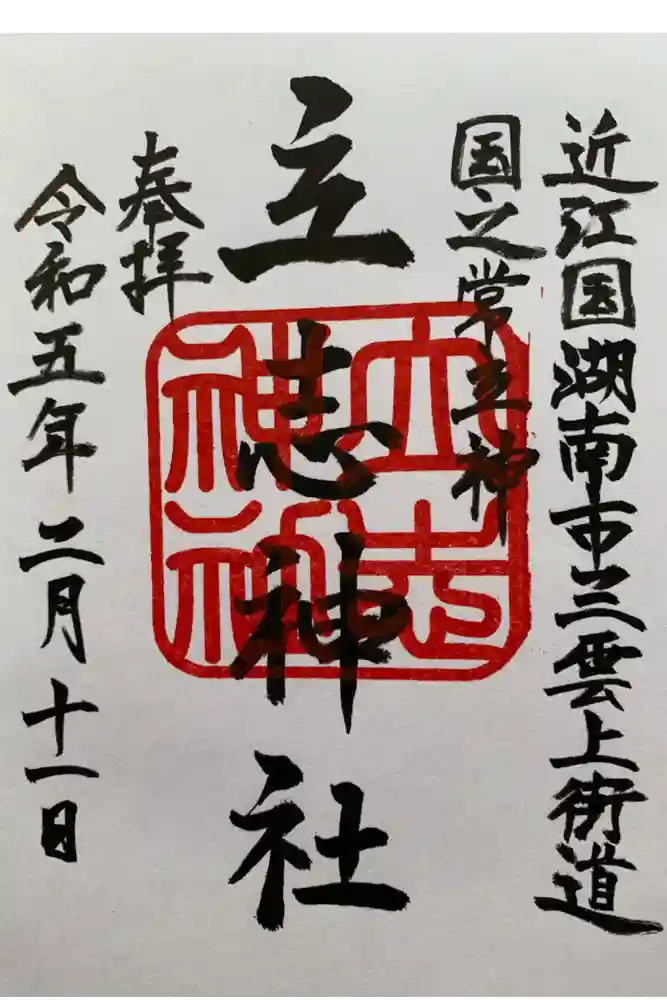 近江国湖南市三雲上街道
国之常立神
立志神社
奉拝
令和五年二月十一日
立志神社